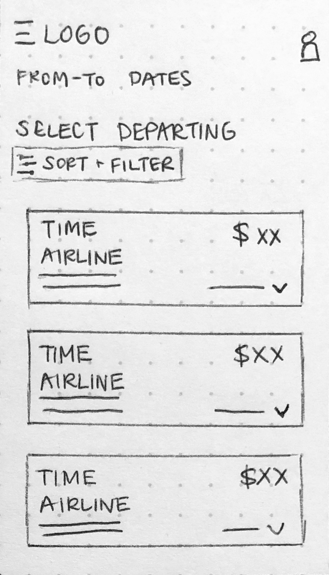 LOGO
FROM-TO DATES
SELECT DEPARTING
SORT + FILTER
TIME $XX
AIRLINE
TIME $XX
AIRLINE
TIME $XX
AIRLINE